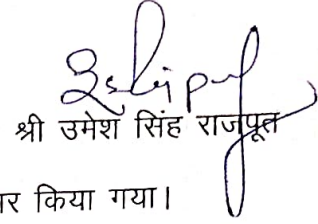 श्री उमेश सिंह राजपूत
किया गया।